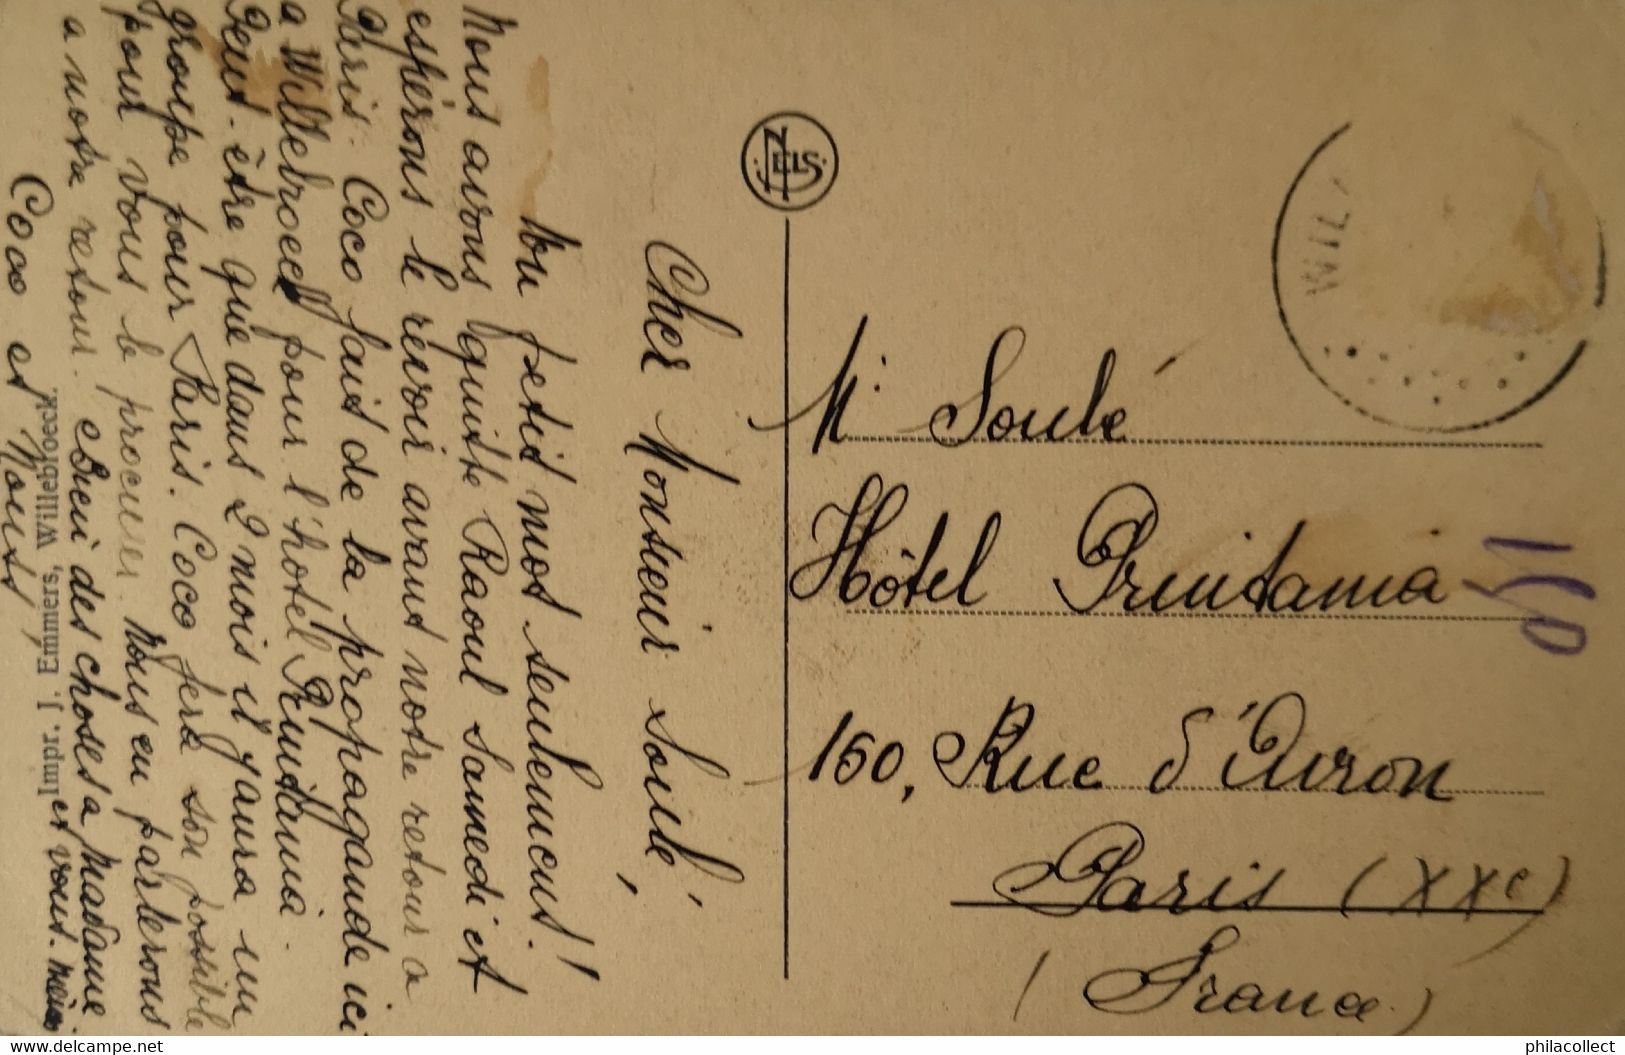 Cher Monsieur Soulé,
Un petit mot seulement!
Nous avons quitté Raoul samedi et
espérons le revoir avant notre retour a
Paris. Coco fait de la propagande ici
a Willebroeck pour l'hotel Printania.
Peut-être que dans 2 mois il y aura un
groupe pour Paris. Coco fera son possible
pour vous le procurer. Nous en parlerons
a notre retour. Bien des choses a Madame
et vous.
Coco et Nous
Impr. J. Emmers, Willebroeck.
NELS
WIL
Mr Soulé
Hôtel Printania
150, Rue d'Avron
Paris (XXe)
(France)
philacollect.com
philacollect